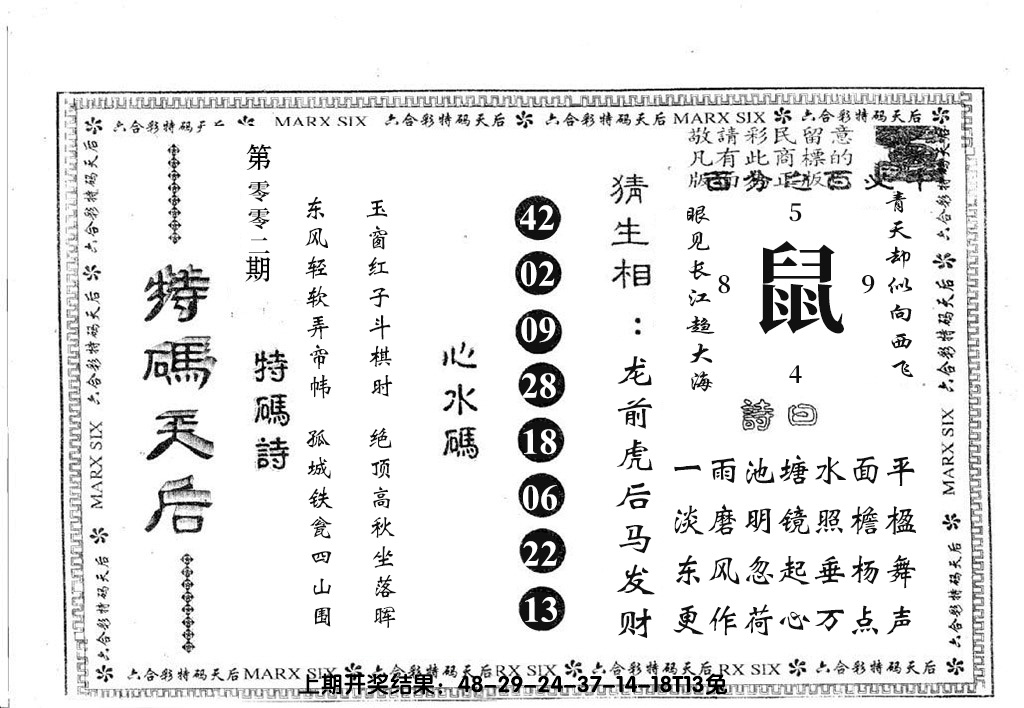 六合彩特码天后 MARX SIX 六合彩特码天后 六合彩特码天后 MARX SIX 六合彩特码天后
敬請彩民留意
凡有此商標的
版面为正版
百分之百
青天却似向西飞
眼见长江趋大海
5
8 鼠 9
4
詩曰
一雨池塘水面平
淡磨明镜照檐楹
东风忽起垂杨舞
更作荷心万点声
猜生相：龙前虎后马发财
42
02
09
28
18
06
22
13
心水碼
玉窗红子斗棋时 绝顶高秋坐落晖
东风轻软弄帘帏 孤城铁瓮四山围
特碼詩
第零零二期
特碼天后
六合彩特码天后 六合彩特码天后 MARX SIX 六合彩特码天后
六合彩特码天后 六合彩特码天后 MARX SIX 六合彩特码天后
六合彩特码天后 MARX SIX 六合彩特码天后 RX SIX 六合彩特码天后 RX SIX 六合彩特码天后
上期开奖结果：48-29-24-37-14-18T13兔